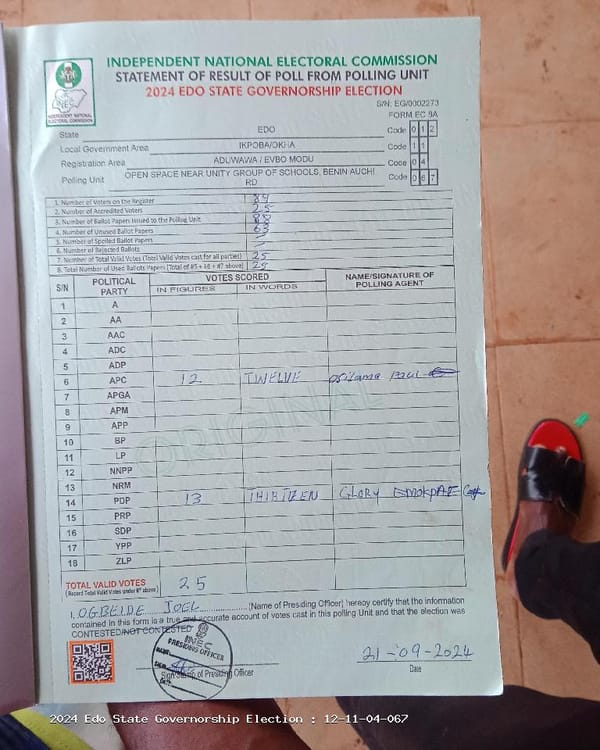 INDEPENDENT NATIONAL ELECTORAL COMMISSION
STATEMENT OF RESULT OF POLL FROM POLLING UNIT
2024 EDO STATE GOVERNORSHIP ELECTION
INEC
INDEPENDENT NATIONAL ELECTORAL COMMISSION
S/N: EG/0002273
FORM EC 8A
State EDO Code 0 1 2
Local Government Area IKPOBA/OKHA Code 1 1
Registration Area ADUWAWA / EVBO MODU Code 0 4
Polling Unit OPEN SPACE NEAR UNITY GROUP OF SCHOOLS, BENIN AUCHI RD Code 0 6 7
1. Number of Voters on the Register
2. Number of Accredited Voters 25
3. Number of Ballot Papers Issued to the Polling Unit 88
4. Number of Unused Ballot Papers 63
5. Number of Spoiled Ballot Papers -
6. Number of Rejected Ballots -
7. Number of Total Valid Votes (Total Valid Votes cast for all parties) 25
8. Total Number of Used Ballots Papers (Total of #5 + #6 + #7 above) 25
S/N POLITICAL PARTY VOTES SCORED NAME/SIGNATURE OF POLLING AGENT
IN FIGURES IN WORDS
1 A
2 AA
3 AAC
4 ADC
5 ADP
6 APC 12 TWELVE
7 APGA
8 APM
9 APP
10 BP
11 LP
12 NNPP
13 NRM
14 PDP 13 THIRTEEN GLORY
15 PRP
16 SDP
17 YPP
18 ZLP
ORIGINAL
TOTAL VALID VOTES 25
(Record Total Valid Votes under #7 above)
I, OGBEIDE JOEL (Name of Presiding Officer) hereby certify that the information
contained in this form is a true and accurate account of votes cast in this polling Unit and that the election was
CONTESTED/NOT CONTESTED
INEC
PRESIDING OFFICER
Signature of Presiding Officer
21-09-2024
Date
2024 Edo State Governorship Election : 12-11-04-067